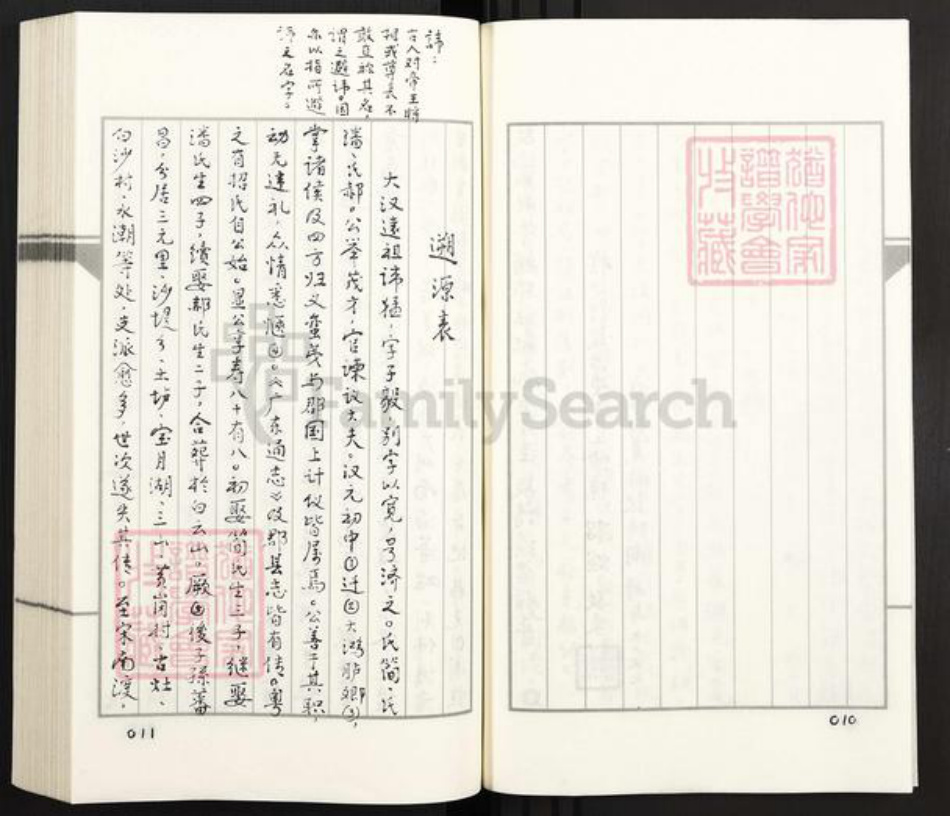 讳：
古人对帝王将
相或尊长不
敢直称其名，
谓之避讳。因
亦以指所避
讳之名字。
遡源表
大汉遠祖讳猛，字子毅，别字以寛，号济之。氏简、氏
潘、氏郝。公举茂才，官谏议大夫。汉元初中①迁②大鸿胪卿③，
掌诸侯及四方归义蛮夷与郡国上计仪皆属焉。公善于其职，
动无违礼，众情悉惬④。《广东通志》及郡县志皆有传。粤
之有招氏自公始。公享寿八十有八。初娶简氏生三子，继娶
潘氏生四子，續娶郝氏生二子，合葬於白云山。厥⑤後子孫蕃
昌，分居三元里、沙堤、土坊、宝月湖、三山、黄岗村、古灶、
白沙村、永潮等处，支派愈多，世次遂失其传。至宋南渡，
011
猶他家
譜學會
收藏
010
FamilySearch